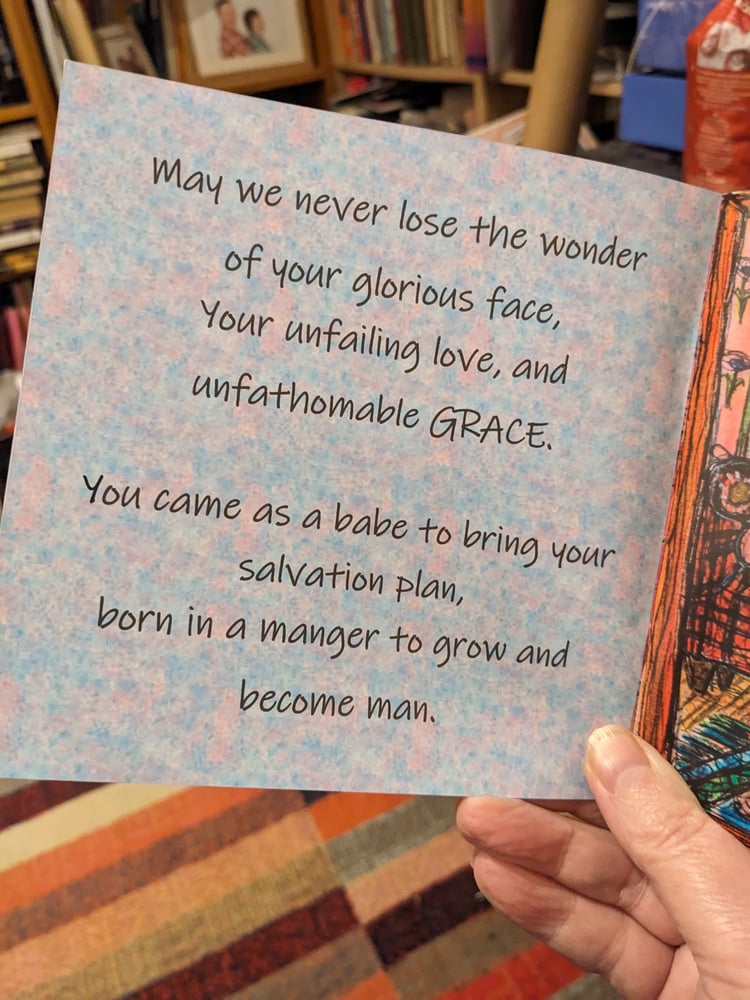 May we never lose the wonder
of your glorious face,
Your unfailing love, and
unfathomable GRACE.
You came as a babe to bring your
salvation plan,
born in a manger to grow and
become man.